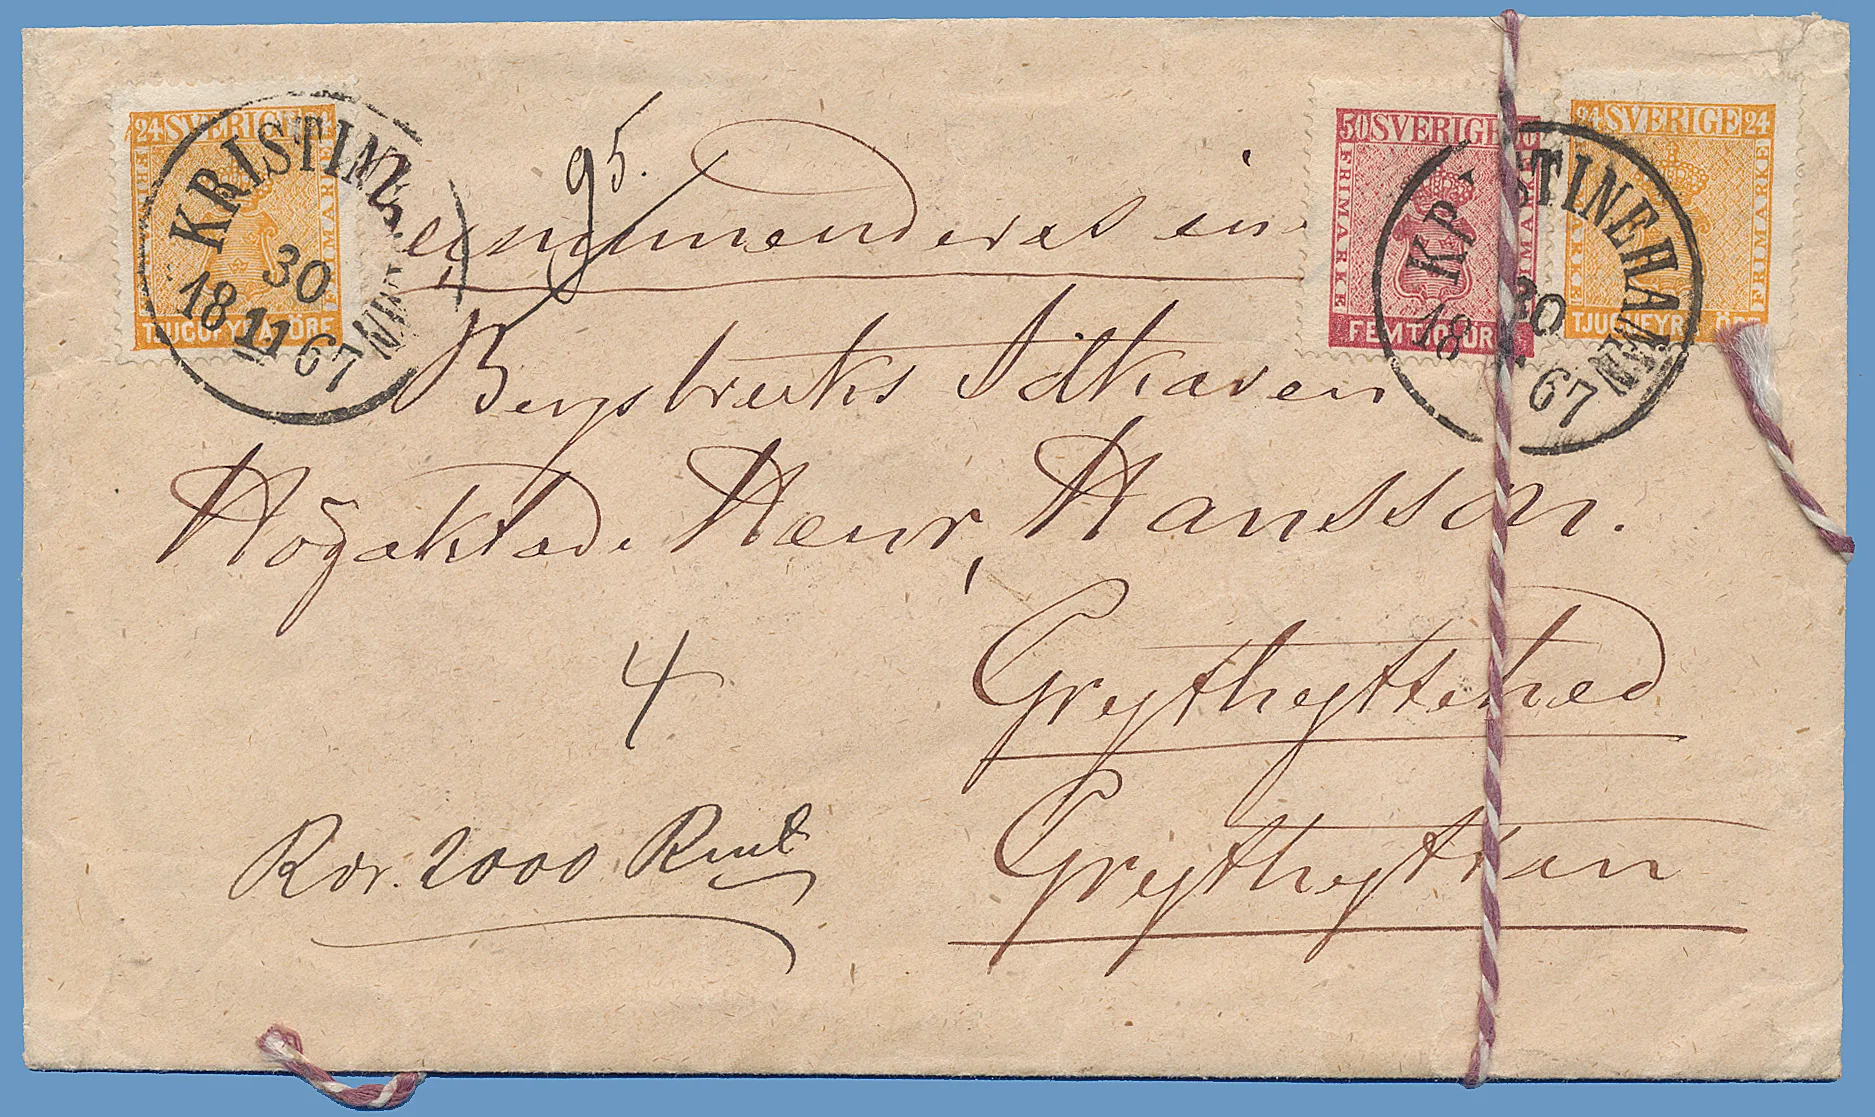 24 SVERIGE
FRIMARKE
FRIMARKE
TJUGUFYRA ÖRE
KRISTINEHAMN
30
18 11 67
50 SVERIGE 50
FRIMARKE
FRIMARKE
FEMTIO ÖRE
24 SVERIGE 24
FRIMARKE
FRIMARKE
TJUGUFYRA ÖRE
KRISTINEHAMN
30
18 11 67
95.
Recommenderas
Högaktade Herr, Hansson.
4
Grythyttehed
Rdr. 2000 Rmt
Grythyttan